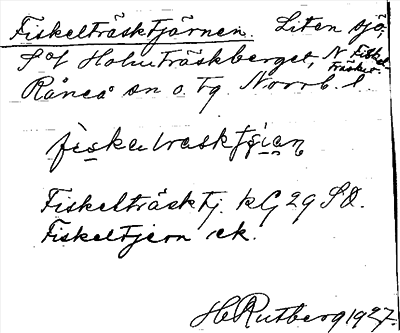 Fiskelträsktjärnen. Liten sjö,
S of Holmträskberget, N Fiskel-
träsket.
Råneå sn o. tg. Norrb. l.
fiskeltrasktjean
Fiskelträsktj. kG 29 SO.
Fiskeltjern ek.
H Rutberg 1927.